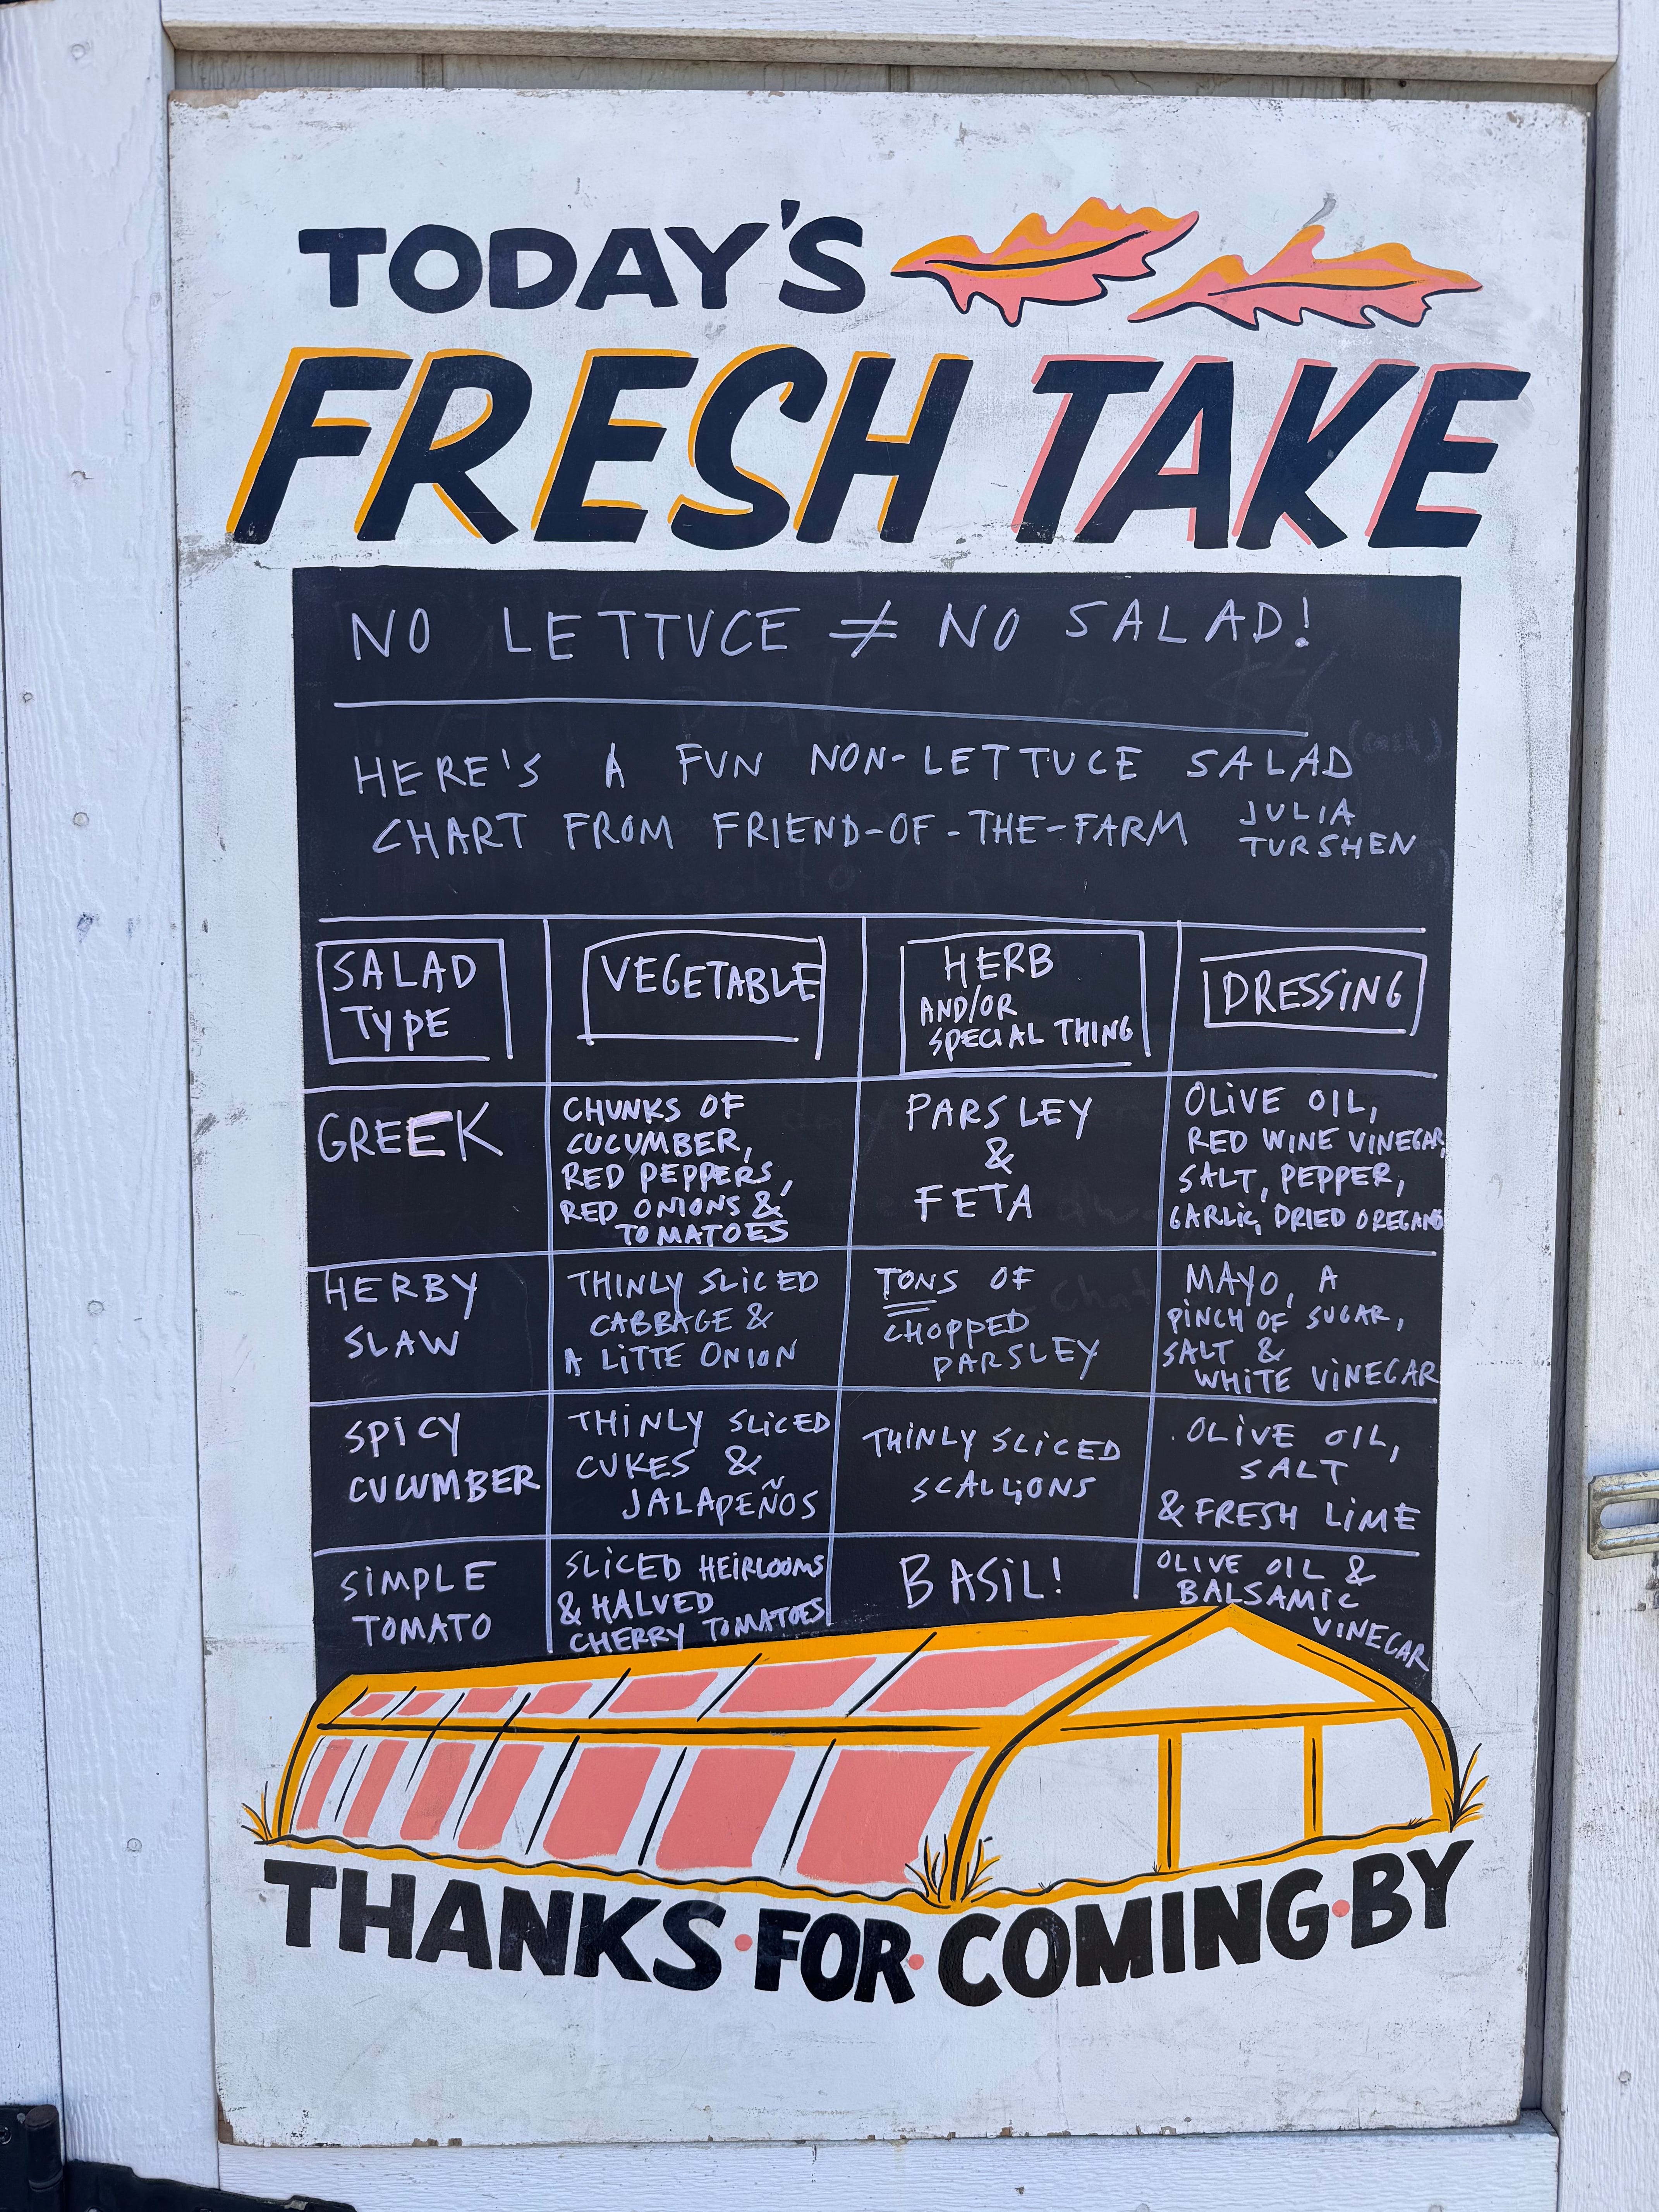 TODAY'S
FRESH TAKE
NO LETTUCE ≠ NO SALAD!
HERE'S A FUN NON-LETTUCE SALAD
CHART FROM FRIEND-OF-THE-FARM JULIA
TURSHEN
SALAD
TYPE
VEGETABLE
HERB
AND/OR
SPECIAL THING
DRESSING
GREEK
CHUNKS OF
CUCUMBER,
RED PEPPERS,
RED ONIONS &
TOMATOES
PARSLEY
&
FETA
OLIVE OIL,
RED WINE VINEGAR,
SALT, PEPPER,
GARLIC, DRIED OREGANO
HERBY
SLAW
THINLY SLICED
CABBAGE &
A LITTE ONION
TONS OF
CHOPPED
PARSLEY
MAYO, A
PINCH OF SUGAR,
SALT &
WHITE VINEGAR
SPICY
CUCUMBER
THINLY SLICED
CUKES &
JALAPEÑOS
THINLY SLICED
SCALLIONS
OLIVE OIL,
SALT
& FRESH LIME
SIMPLE
TOMATO
SLICED HEIRLOOMS
& HALVED
CHERRY TOMATOES
BASIL!
OLIVE OIL &
BALSAMIC
VINEGAR
THANKS•FOR•COMING•BY